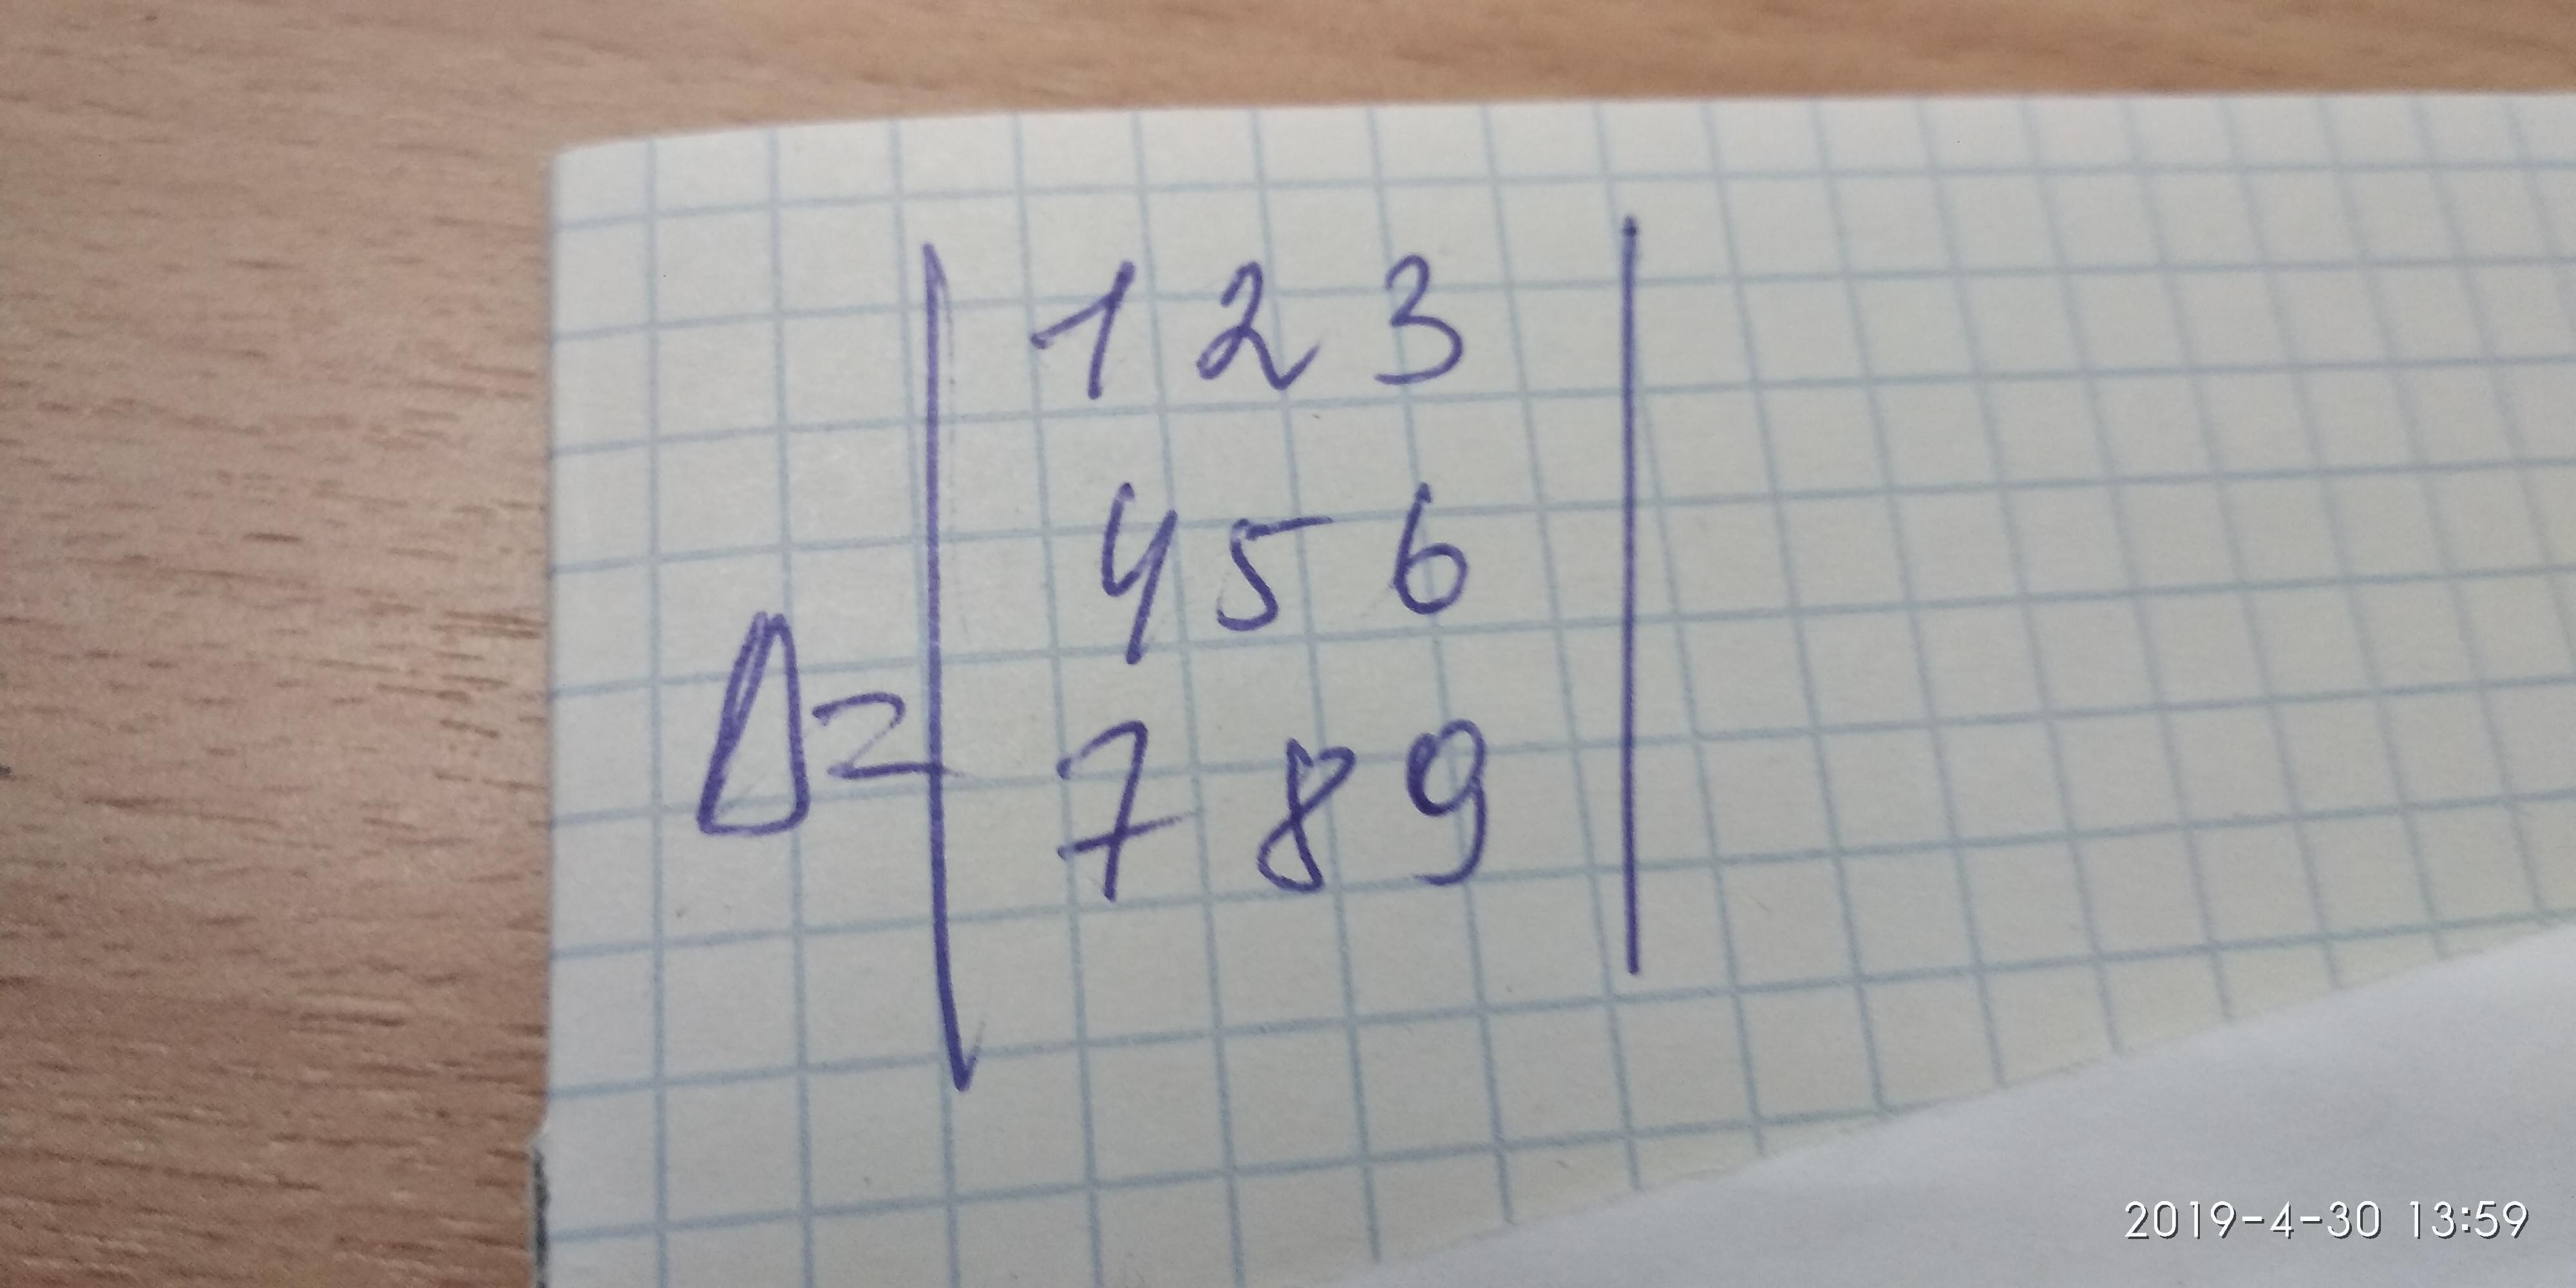 1 2 3
4 5 6
Δ=
7 8 9
2019-4-30 13:59